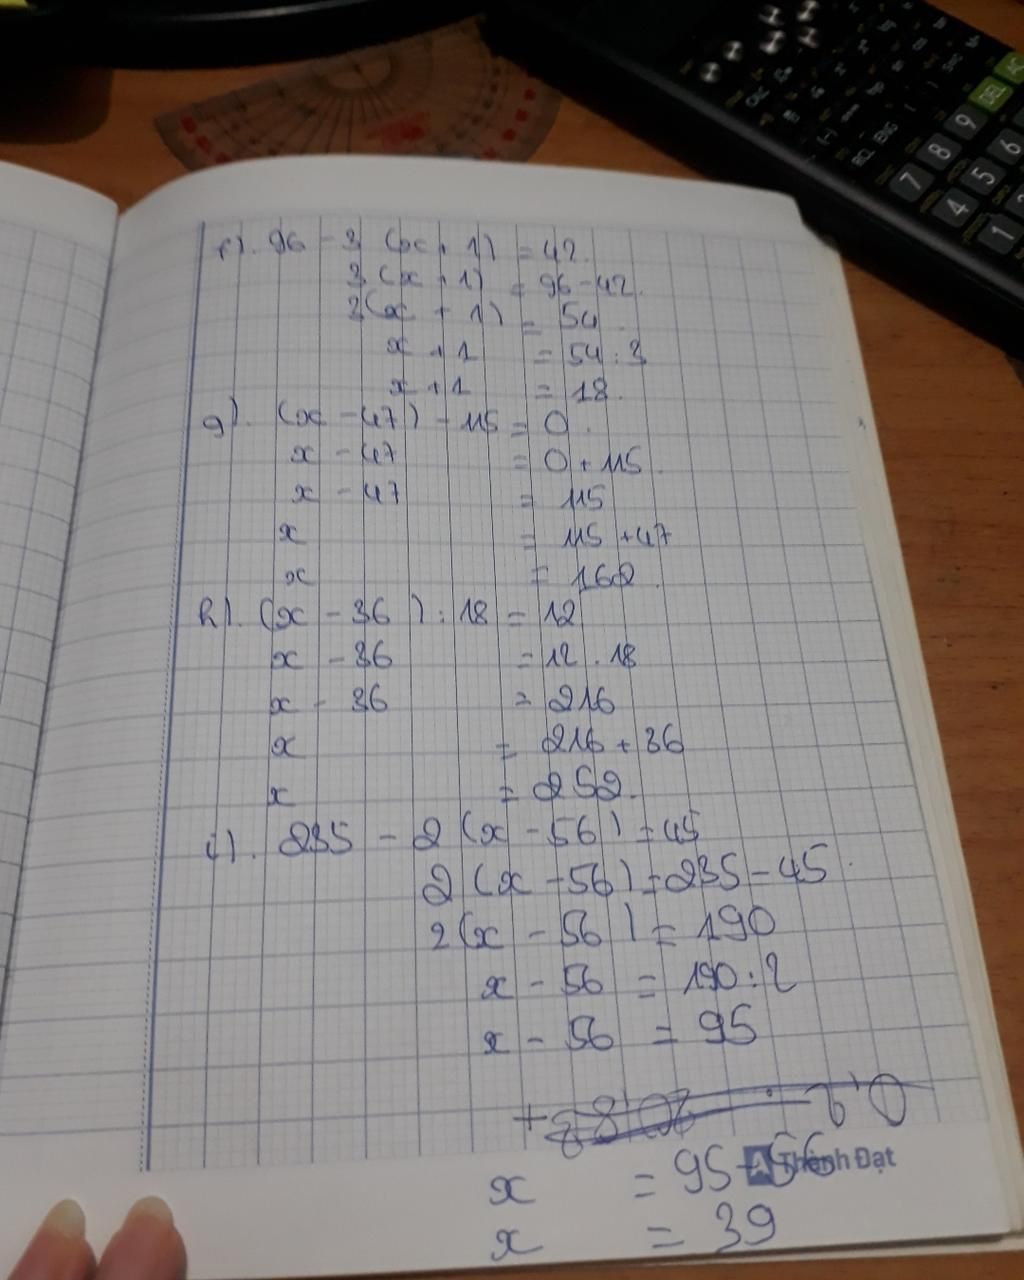 AC
DEL
7 8 9
4 5 6
1
f). 96 - 3 (x + 1) = 42.
3 (x + 1) = 96 - 42.
3(x + 1) = 54
x + 1 = 54 : 3
x + 1 = 18.
g). (x - 47) - 115 = 0.
x - 47 = 0 + 115.
x - 47 = 115
x = 115 + 47
x = 162.
h). (x - 36) : 18 = 12
x - 36 = 12 . 18
x - 36 = 216
x = 216 + 36
x = 252.
i). 235 - 2 (x - 56) = 45
2 (x - 56) = 235 - 45.
2(x - 56) = 190
x - 56 = 190 : 2
x - 56 = 95
x = 95 - 56
Thành Đạt
x = 39